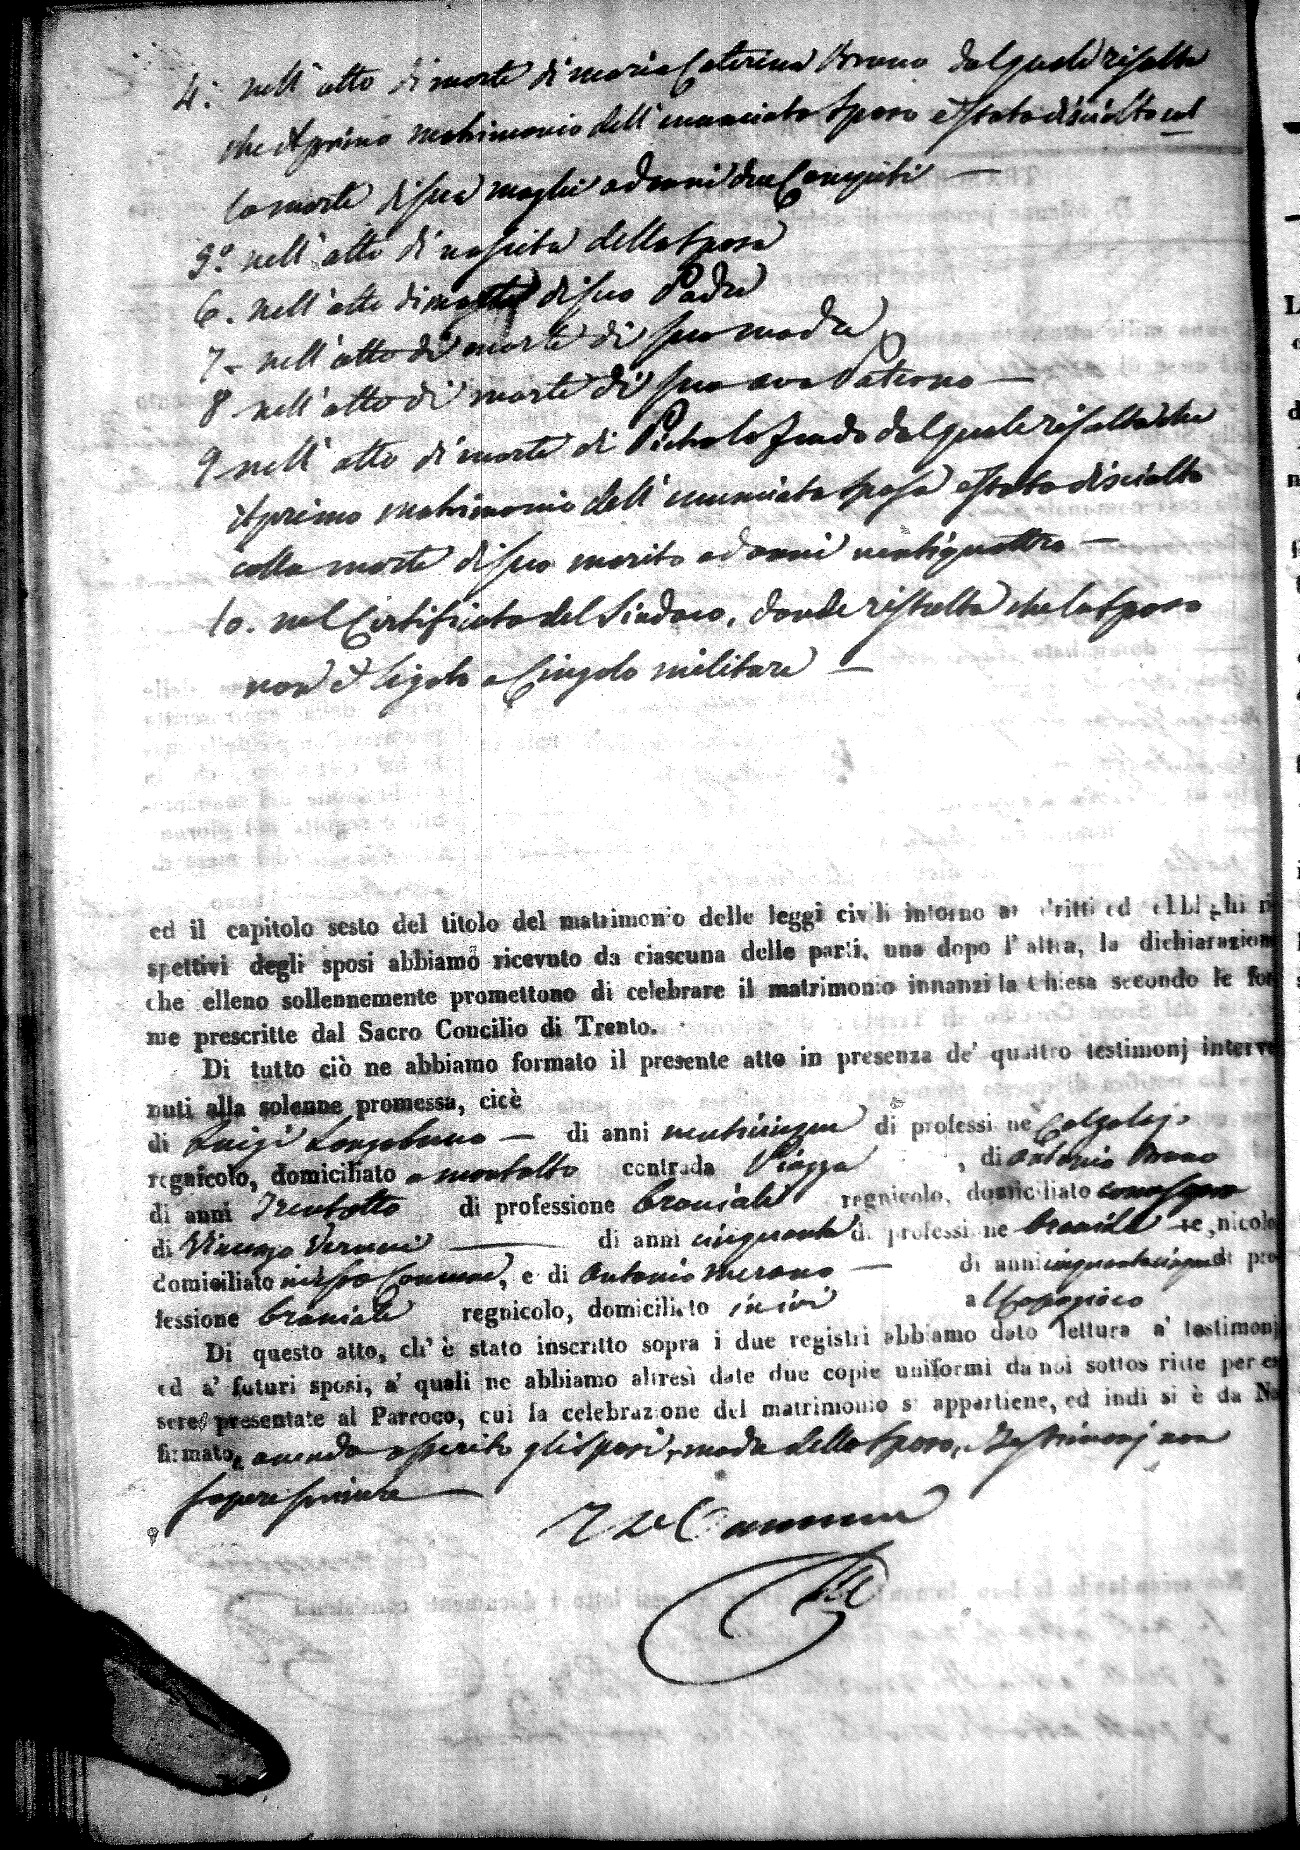 4. nell'atto di morte di Maria Caterina Bruno dal quale risulta
che il primo matrimonio dell'enunciato sposo è stato disciolto col
la morte di sua moglie ad anni
5.° nell'atto di nascita della sposa
6. nell'atto di morte di suo Padre
7. nell'atto di morte di sua madre
8 nell'atto di morte di suo avo Paterno —
9 nell'atto di morte di dal quale risulta che
il primo matrimonio dell'enunciata sposa è stato disciolto
colla morte di suo marito ad anni ventiquattro —
10. nel Certificato del Sindaco, donde risulta che lo sposo
non è ligato a Cingolo militare —
ed il capitolo sesto del titolo del matrimonio delle leggi civili intorno a' dritti ed obblighi ri
spettivi degli sposi abbiamo ricevuto da ciascuna delle parti, una dopo l'altra, la dichiarazione
che elleno sollennemente promettono di celebrare il matrimonio innanzi la Chiesa secondo le for
me prescritte dal Sacro Concilio di Trento.
Di tutto ciò ne abbiamo formato il presente atto in presenza de' quattro testimonj interve
nuti alla solenne promessa, cioè
di Luigi Longobucco — di anni venticinque di professione Calzolajo
regnicolo, domiciliato a Montalto contrada Piazza , di Antonio Bruno
di anni Trentotto di professione bracciale regnicolo, domiciliato come sopra
di Vincenzo — di anni cinquanta di professione bracciale regnicolo
domiciliato in Comune, e di Antonio — di anni cinquantacinque di pro
fessione bracciale regnicolo, domiciliato ivi
Di questo atto, ch' è stato inscritto sopra i due registri abbiamo dato lettura a' testimonj
ed a' futuri sposi, a' quali ne abbiamo altresì date due copie uniformi da noi sottoscritte per es
sere presentate al Parroco, cui la celebrazione del matrimonio si appartiene, ed indi si è da Noi
firmato, avendo asserito gli sposi, madre dello sposo, e Testimonj non
sapere scrivere —